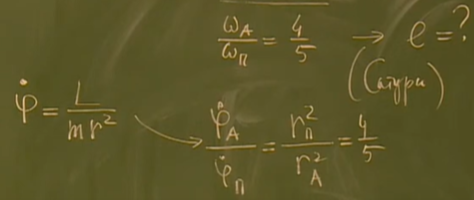 ω_A/ω_п = 4/5 → e = ?
(Сатурн)
φ̇ = L/mr²
φ̇_A/φ̇_п = r_п²/r_A² = 4/5